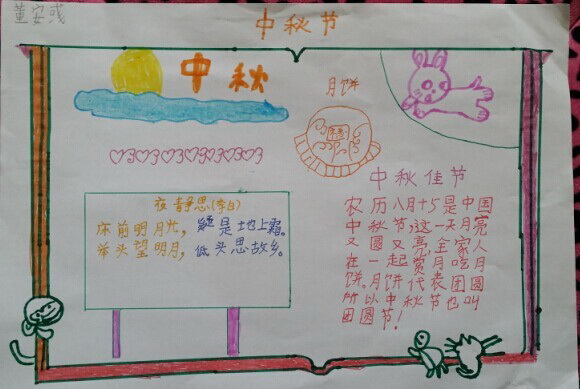 董安彧
中秋节
中秋
月饼
夜静思(李白)
床前明月光,疑是地上霜。
举头望明月,低头思故乡。
中秋佳节
农历八月十5是中国
中秋节,这一天月亮
又圆又亮,全家人
在一起赏月吃月
饼。月饼代表团圆
所以中秋节也叫
团圆节!